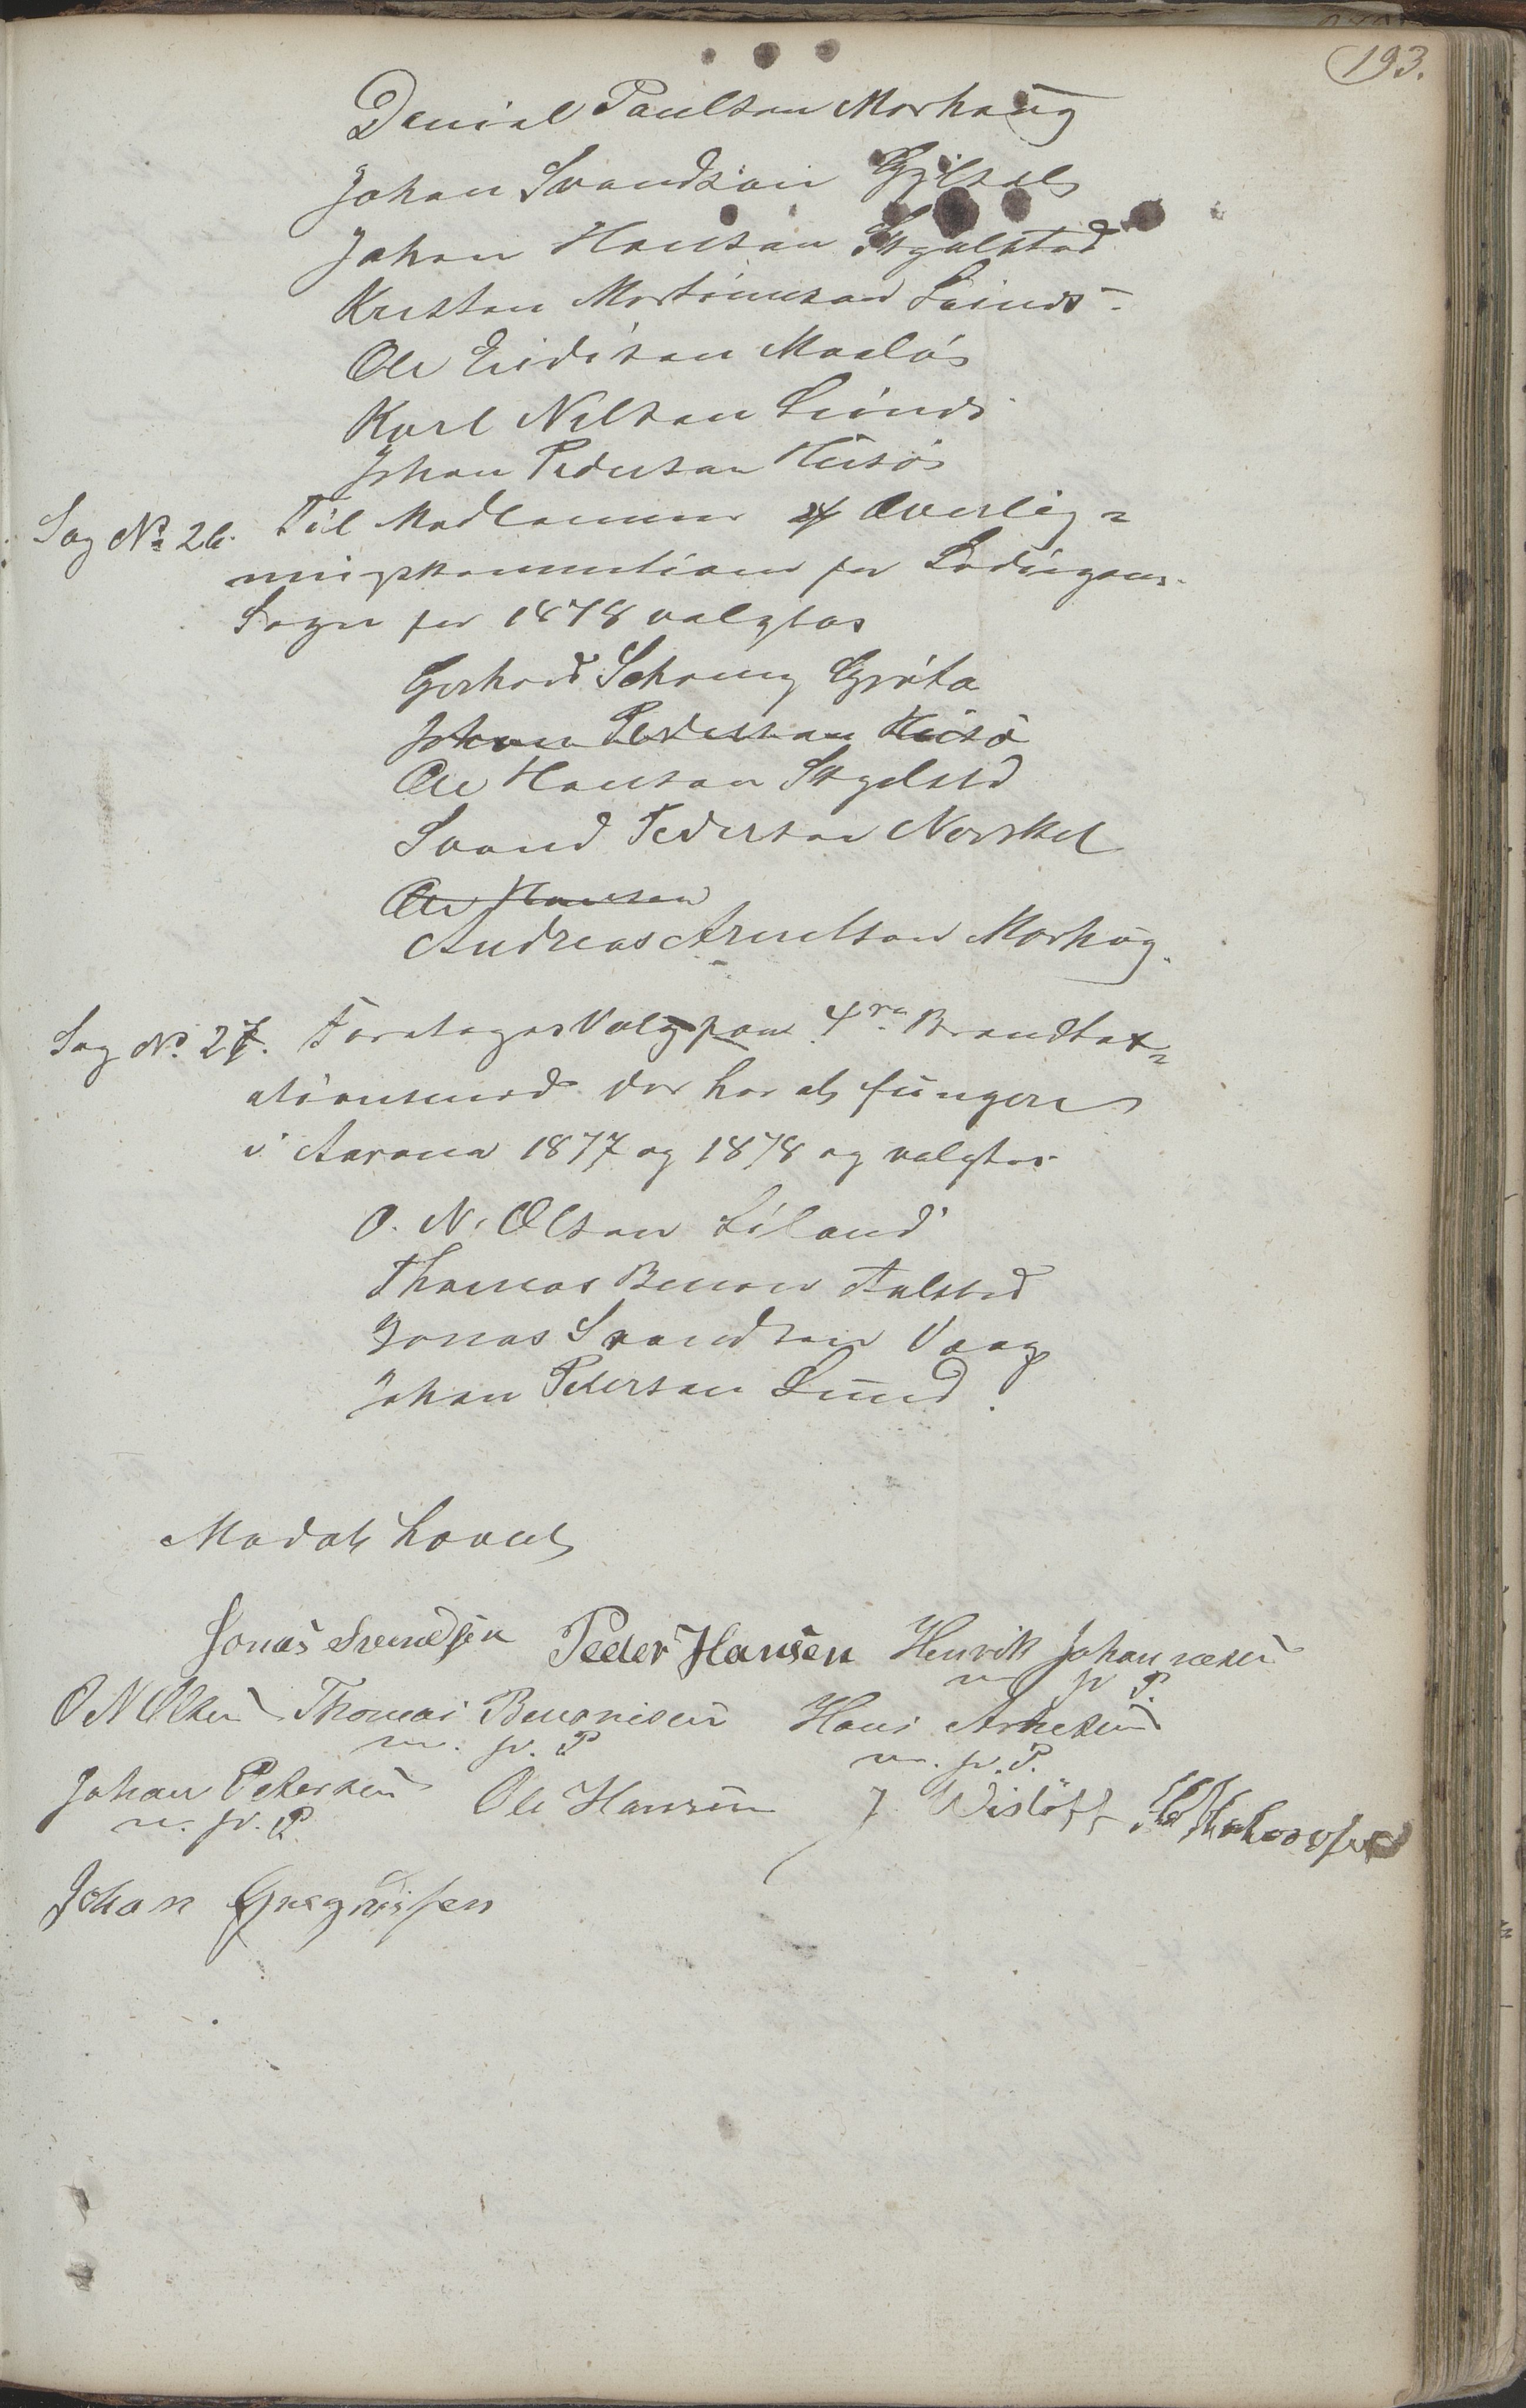 193.
Daniel Paulsen Morhaug
Johan Svendsen
Johan Hansen Skjelstad
Kristen Mortinusen Lund
Ole Eidisen Maaløs
Karl Nilsen Lund
Johan Pedersen Husø
Sag No 26. Til Medlemmer af Overlig=
ningskommitioen for Lødingens
Sogn for 1878 valgtes
Gerhard Schøning Grøta
Johan Pedersen Husø
Ole Hansen Skjelstd
Svend Pedersen Norskel
Ole Hansen
Andreas Arntsen Morhøg.
Sag No. 27. Foretoges Valg paa 4re Brandtax=
ationsmend der har at fungere
i Aarene 1877 og 1878 og valgtes
O. N. Olsen Liland
Thomas Benon Aalstad
Jonas Svendsen Vaag
Johan Petersen Lund.
Mødet hævet
Jonas Svendsen Peder Hansen Henrik Johannesen
m p P.
O N Olsen Thomas Benonisen Hans Arnesen
m. p. P m. p. P.
Johan Petersen Ole Hansen J Wisløff
m. p. P.
Johan Gregussen